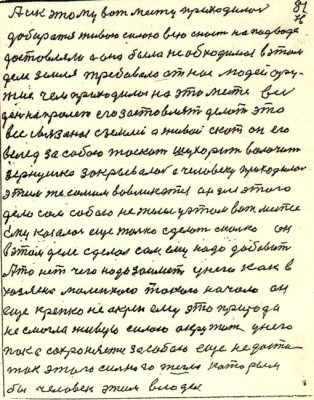 81
А и к этому вот месту приходилося
добирать живою силою всю скот на подводе
доставляли а оно было необходимое в этом
деле земля требовала от нас людей ору-
жие чем приходилося на это место
его заставляют делать это
все связано с землей а живой скот он его
вслед за собою таскат волочит
зернушко закрывался а человеку приходилося
этим же самым он для этого
дела сам собою не только у этом вот месте
ему казалось еще только сделат сколко он
в этом деле сделал сам ему надо добавить
А то нет чего надо займет у него как в
хозяена маленкого такого начало он
еще крепко не окреп ему это природа
не смогла живую силою окружит у него
пока сохраняти за собою еще не доста-
ток этого силного тела которым
бы человек этим владел